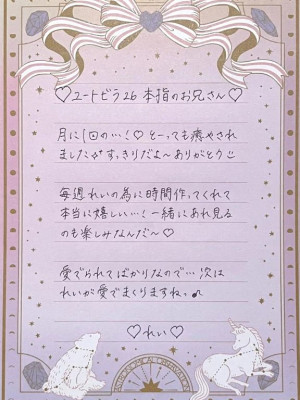 ♡ユートピう26 本指のお兄さん♡
月に1回の…!♡とーっても癒やされ
ました✨すっきりだよ〜ありがとう☺
毎週れいの為に時間作ってくれて
本当に嬉しい…!一緒にあれ見る
のも楽しみなんだ〜♡
愛でられてばかりなので…次は
れいが愛でまくりますね。♪
♡れい♡